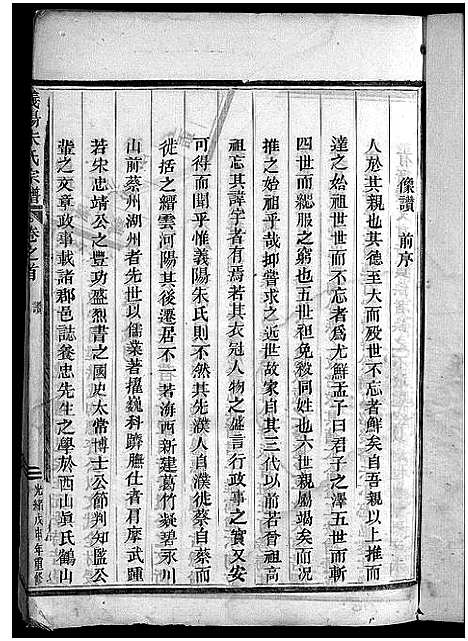 像讚　前序
人於其親也其德至大而歿世不忘者鮮矣自吾親以上推而
達之始祖世世而不忘者為尤鮮孟子曰君子之澤五世而斬
四世而緦服之窮也五世袒免殺同姓也六世親屬竭矣而況
推之始祖乎哉抑嘗求之近世故家自其三代以前若曾祖高
祖忘其諱字者有焉若其衣冠人物之盛言行政事之實又安
可得而聞乎惟義陽朱氏則不然其先濮人自濮徙蔡自蔡而
徙括之縉雲河陽其後遷居不一若海西新建葛竹凝碧永川
山前蔡州湖州者先世以儒業著擢巍科躋膴仕者肩摩武踵
若宋忠靖公之豐功盛烈書之國史太常博士公節判知監公
輩之文章政事載諸郡邑誌養忠先生之學於西山真氏鶴山
義陽朱氏宗譜　卷之首　讚
光緒戊申年重修